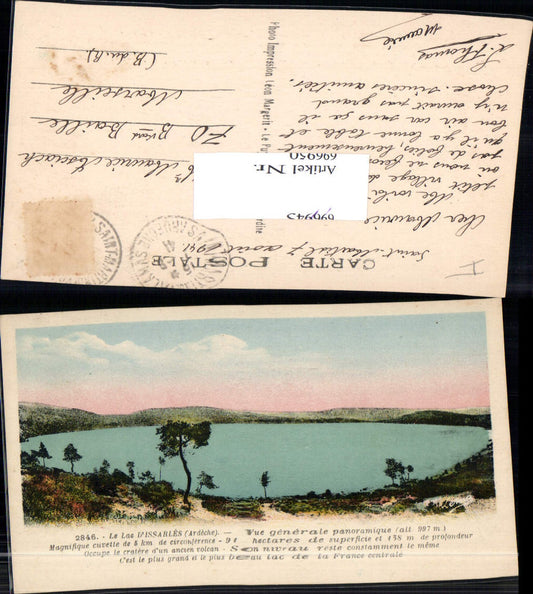 CARTE POSTALE
Photo Impression Léon Margerit - Le Pu
Saint-Martial 7 août 1941
Cher Maurice
Me voilà
petit village de
où nous ne
pas de folies, heureusement
qu'il y a bonne table et
bon air car sans ça il
n'y aurait pas grand
chose. Sincères amitiés.
Maurice
Marseille
(B. du R.)
70 Bd Baille
Artikel Nr.
696950
696945
2846. - Le Lac D'ISSARLÈS (Ardèche). - Vue générale panoramique (alt. 997 m.)
Magnifique cuvette de 5 km de circonférence - 91 hectares de superficie et 138 m de profondeur
Occupe le cratère d'un ancien volcan - Son niveau reste constamment le même
C'est le plus grand et le plus beau lac de la France centrale